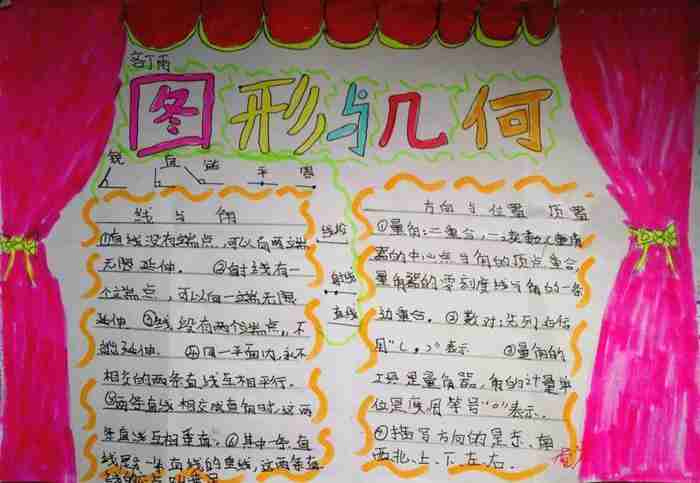 图形与几何
锐 直 钝 平 周
线与角
①直线没有端点，可以向两端
无限延伸。②射线有一
个端点，可以向一端无限
延伸。③线段有两个端点，不
能延伸。④同一平面内，永不
相交的两条直线互相平行。
⑤两条直线相交成直角时，这两
条直线互相垂直。⑥其中一条直
线是另一条直线的垂线，这两条直
线的
线段
射线
直线
方向与位置
①量角：二重合，
器的中心点与角的顶点重合，
量角器的零刻度线与角的一条
边重合。②数对：先列后行
用"( , )"表示 ③量角的
工具是量角器，角的计量单
位是度用符号"°"表示。
④描写方向的是东、南
西北、上、下、左、右。